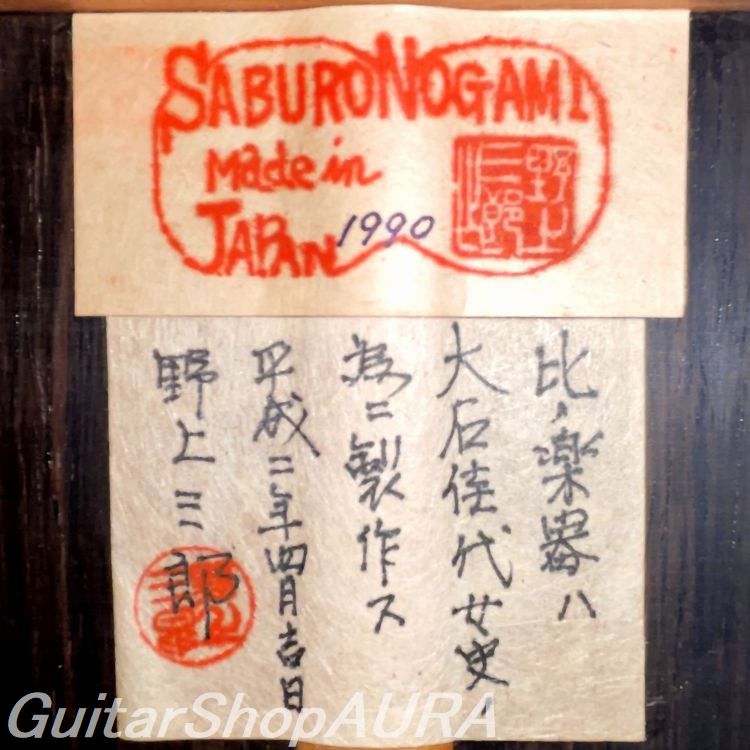 SABURO NOGAMI
Made in
JAPAN 1990
野上
三郎
比ノ楽器ハ
大石佳代女史ノ
為ニ製作ス
平成二年四月吉日
野上三郎
GuitarShopAURA